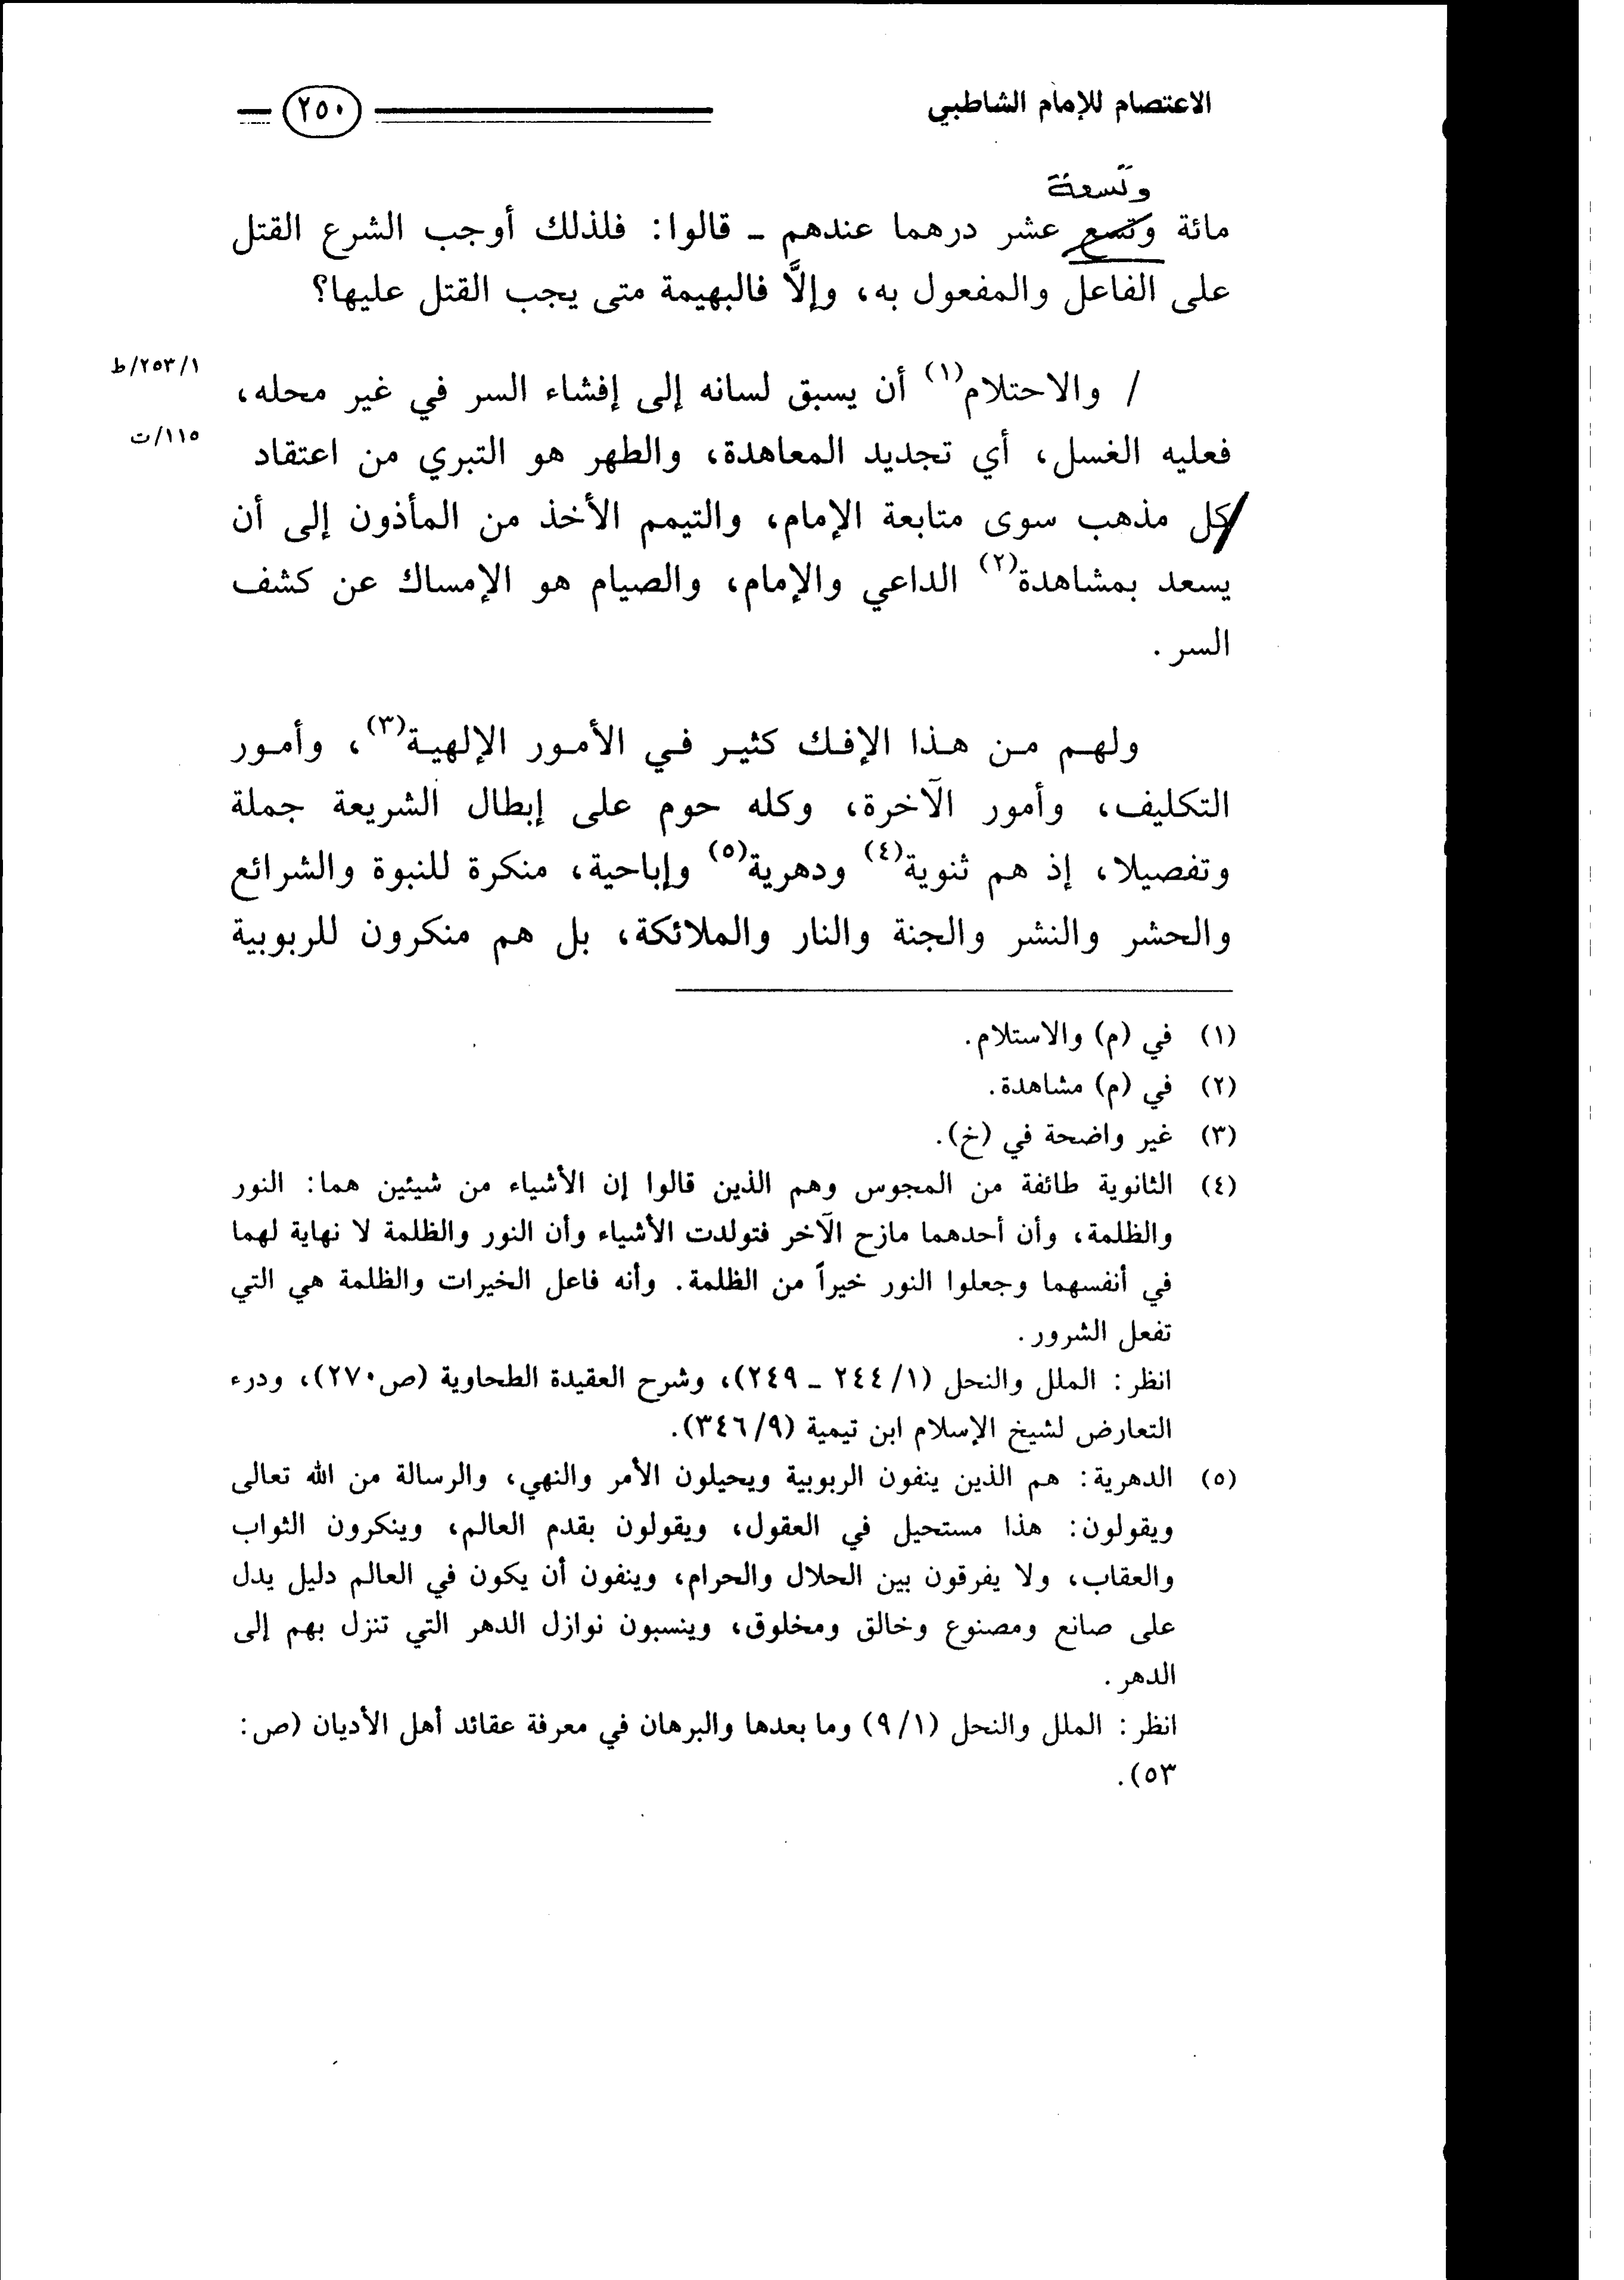 الاعتصام للإمام الشاطبي
٢٥٠
وتسعة
مائة وتسع عشر درهما عندهم - قالوا: فلذلك أوجب الشرع القتل
على الفاعل والمفعول به، وإلاَّ فالبهيمة متى يجب القتل عليها؟
٢٥٣/١/ط
/ والاحتلام(١) أن يسبق لسانه إلى إفشاء السر في غير محله،
١١٥/ت
فعليه الغسل، أي تجديد المعاهدة، والطهر هو التبري من اعتقاد
/كل مذهب سوى متابعة الإمام، والتيمم الأخذ من المأذون إلى أن
يسعد بمشاهدة(٢) الداعي والإمام، والصيام هو الإمساك عن كشف
السر.
ولهم من هذا الإفك كثير في الأمور الإلهية(٣)، وأمور
التكليف، وأمور الآخرة، وكله حوم على إبطال الشريعة جملة
وتفصيلا، إذ هم ثنوية(٤) ودهرية(٥) وإباحية، منكرة للنبوة والشرائع
والحشر والنشر والجنة والنار والملائكة، بل هم منكرون للربوبية
(١) في (م) والاستلام.
(٢) في (م) مشاهدة.
(٣) غير واضحة في (خ).
(٤) الثانوية طائفة من المجوس وهم الذين قالوا إن الأشياء من شيئين هما: النور
والظلمة، وأن أحدهما مازح الآخر فتولدت الأشياء وأن النور والظلمة لا نهاية لهما
في أنفسهما وجعلوا النور خيراً من الظلمة. وأنه فاعل الخيرات والظلمة هي التي
تفعل الشرور.
انظر: الملل والنحل (٢٤٤/١ - ٢٤٩)، وشرح العقيدة الطحاوية (ص٢٧٠)، ودرء
التعارض لشيخ الإسلام ابن تيمية (٣٤٦/٩).
(٥) الدهرية: هم الذين ينفون الربوبية ويحيلون الأمر والنهي، والرسالة من الله تعالى
ويقولون: هذا مستحيل في العقول، ويقولون بقدم العالم، وينكرون الثواب
والعقاب، ولا يفرقون بين الحلال والحرام، وينفون أن يكون في العالم دليل يدل
على صانع ومصنوع وخالق ومخلوق، وينسبون نوازل الدهر التي تنزل بهم إلى
الدهر.
انظر: الملل والنحل (٩/١) وما بعدها والبرهان في معرفة عقائد أهل الأديان (ص:
٥٣).